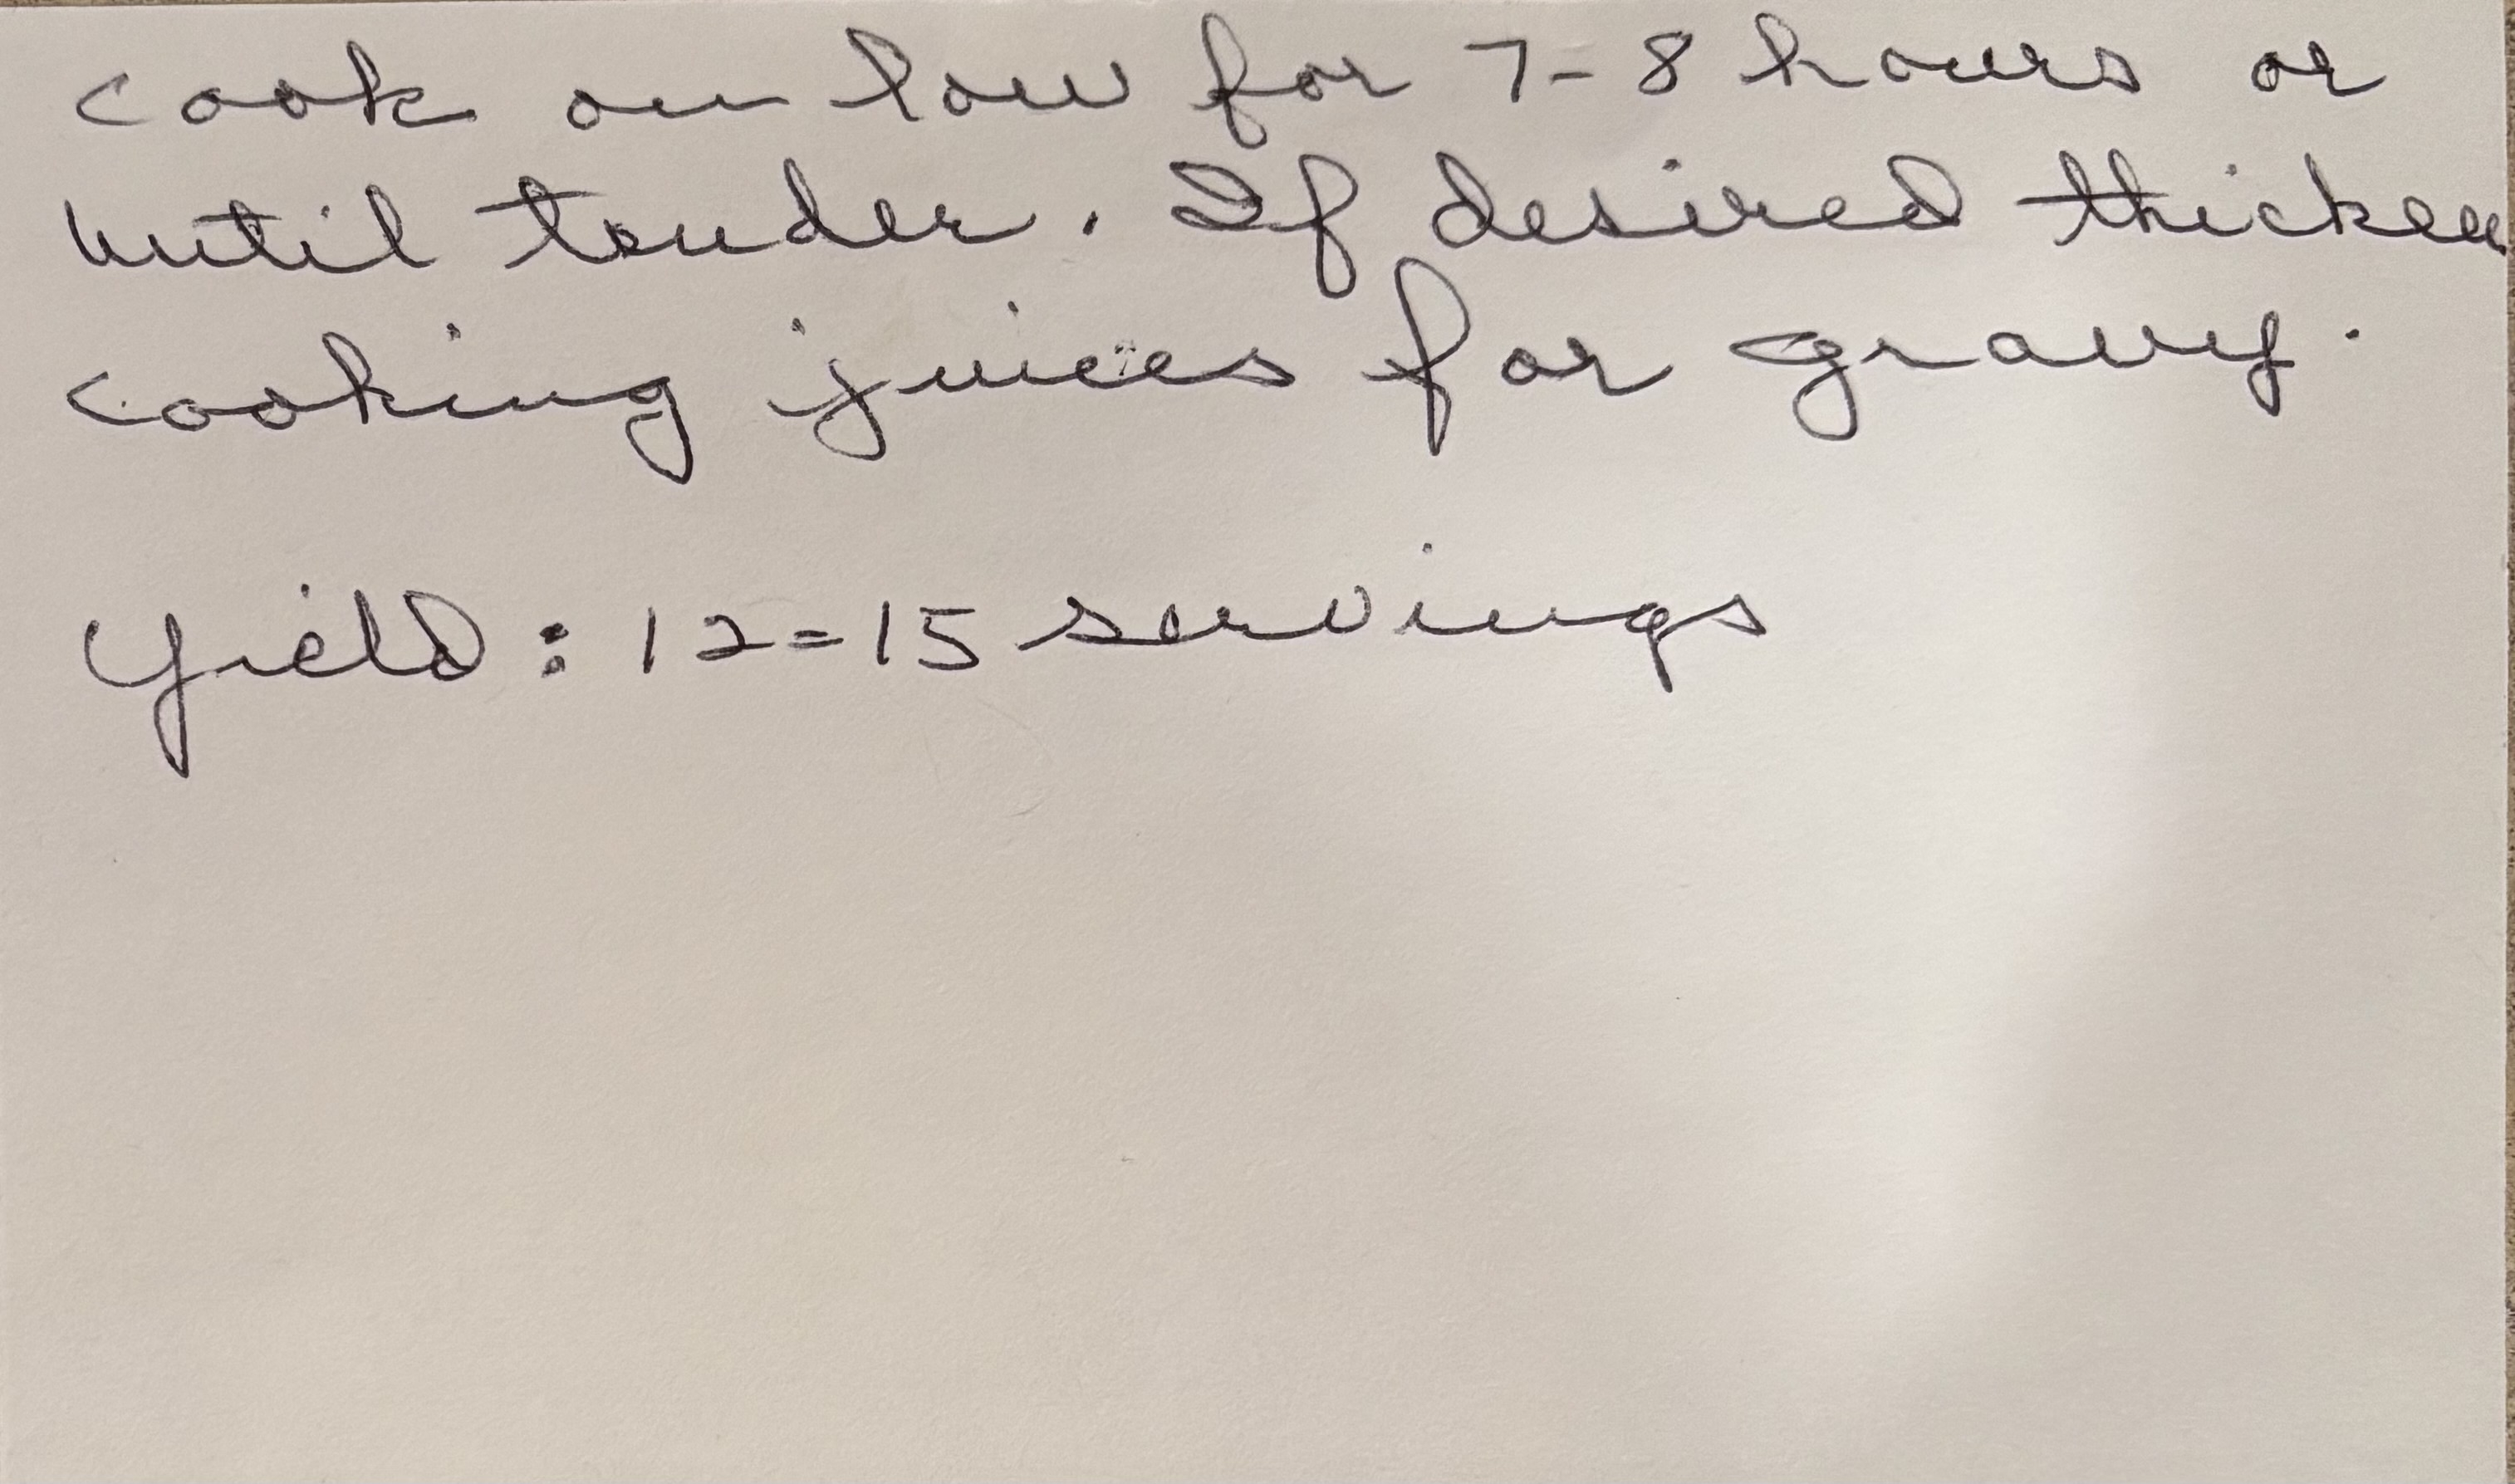 cook on low for 7-8 hours or
until tender. If desired thicken
cooking juices for gravy.
Yield: 12=15 servings